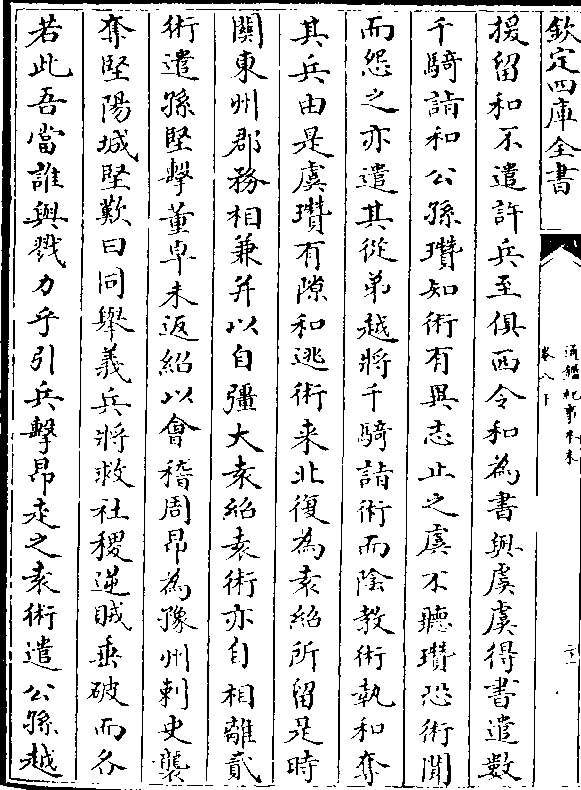 欽定四庫全書
通鑑紀事本末
卷八下
援留和不遣許兵至俱西令和為書與虞虞得書遣數
千騎詣和公孫瓚知術有異志止之虞不聽瓚恐術聞
而怨之亦遣其從弟越將千騎詣術而陰教術執和奪
其兵由是虞瓚有隙和逃術来北復為袁紹所留是時
關東州郡務相兼并以自彊大袁紹袁術亦自相離貳
術遣孫堅擊董卓未返紹以會稽周昂為豫州刺史襲
奪堅陽城堅歎曰同舉義兵將救社稷逆賊垂破而各
若此吾當誰與戮力乎引兵擊昂走之袁術遣公孫越